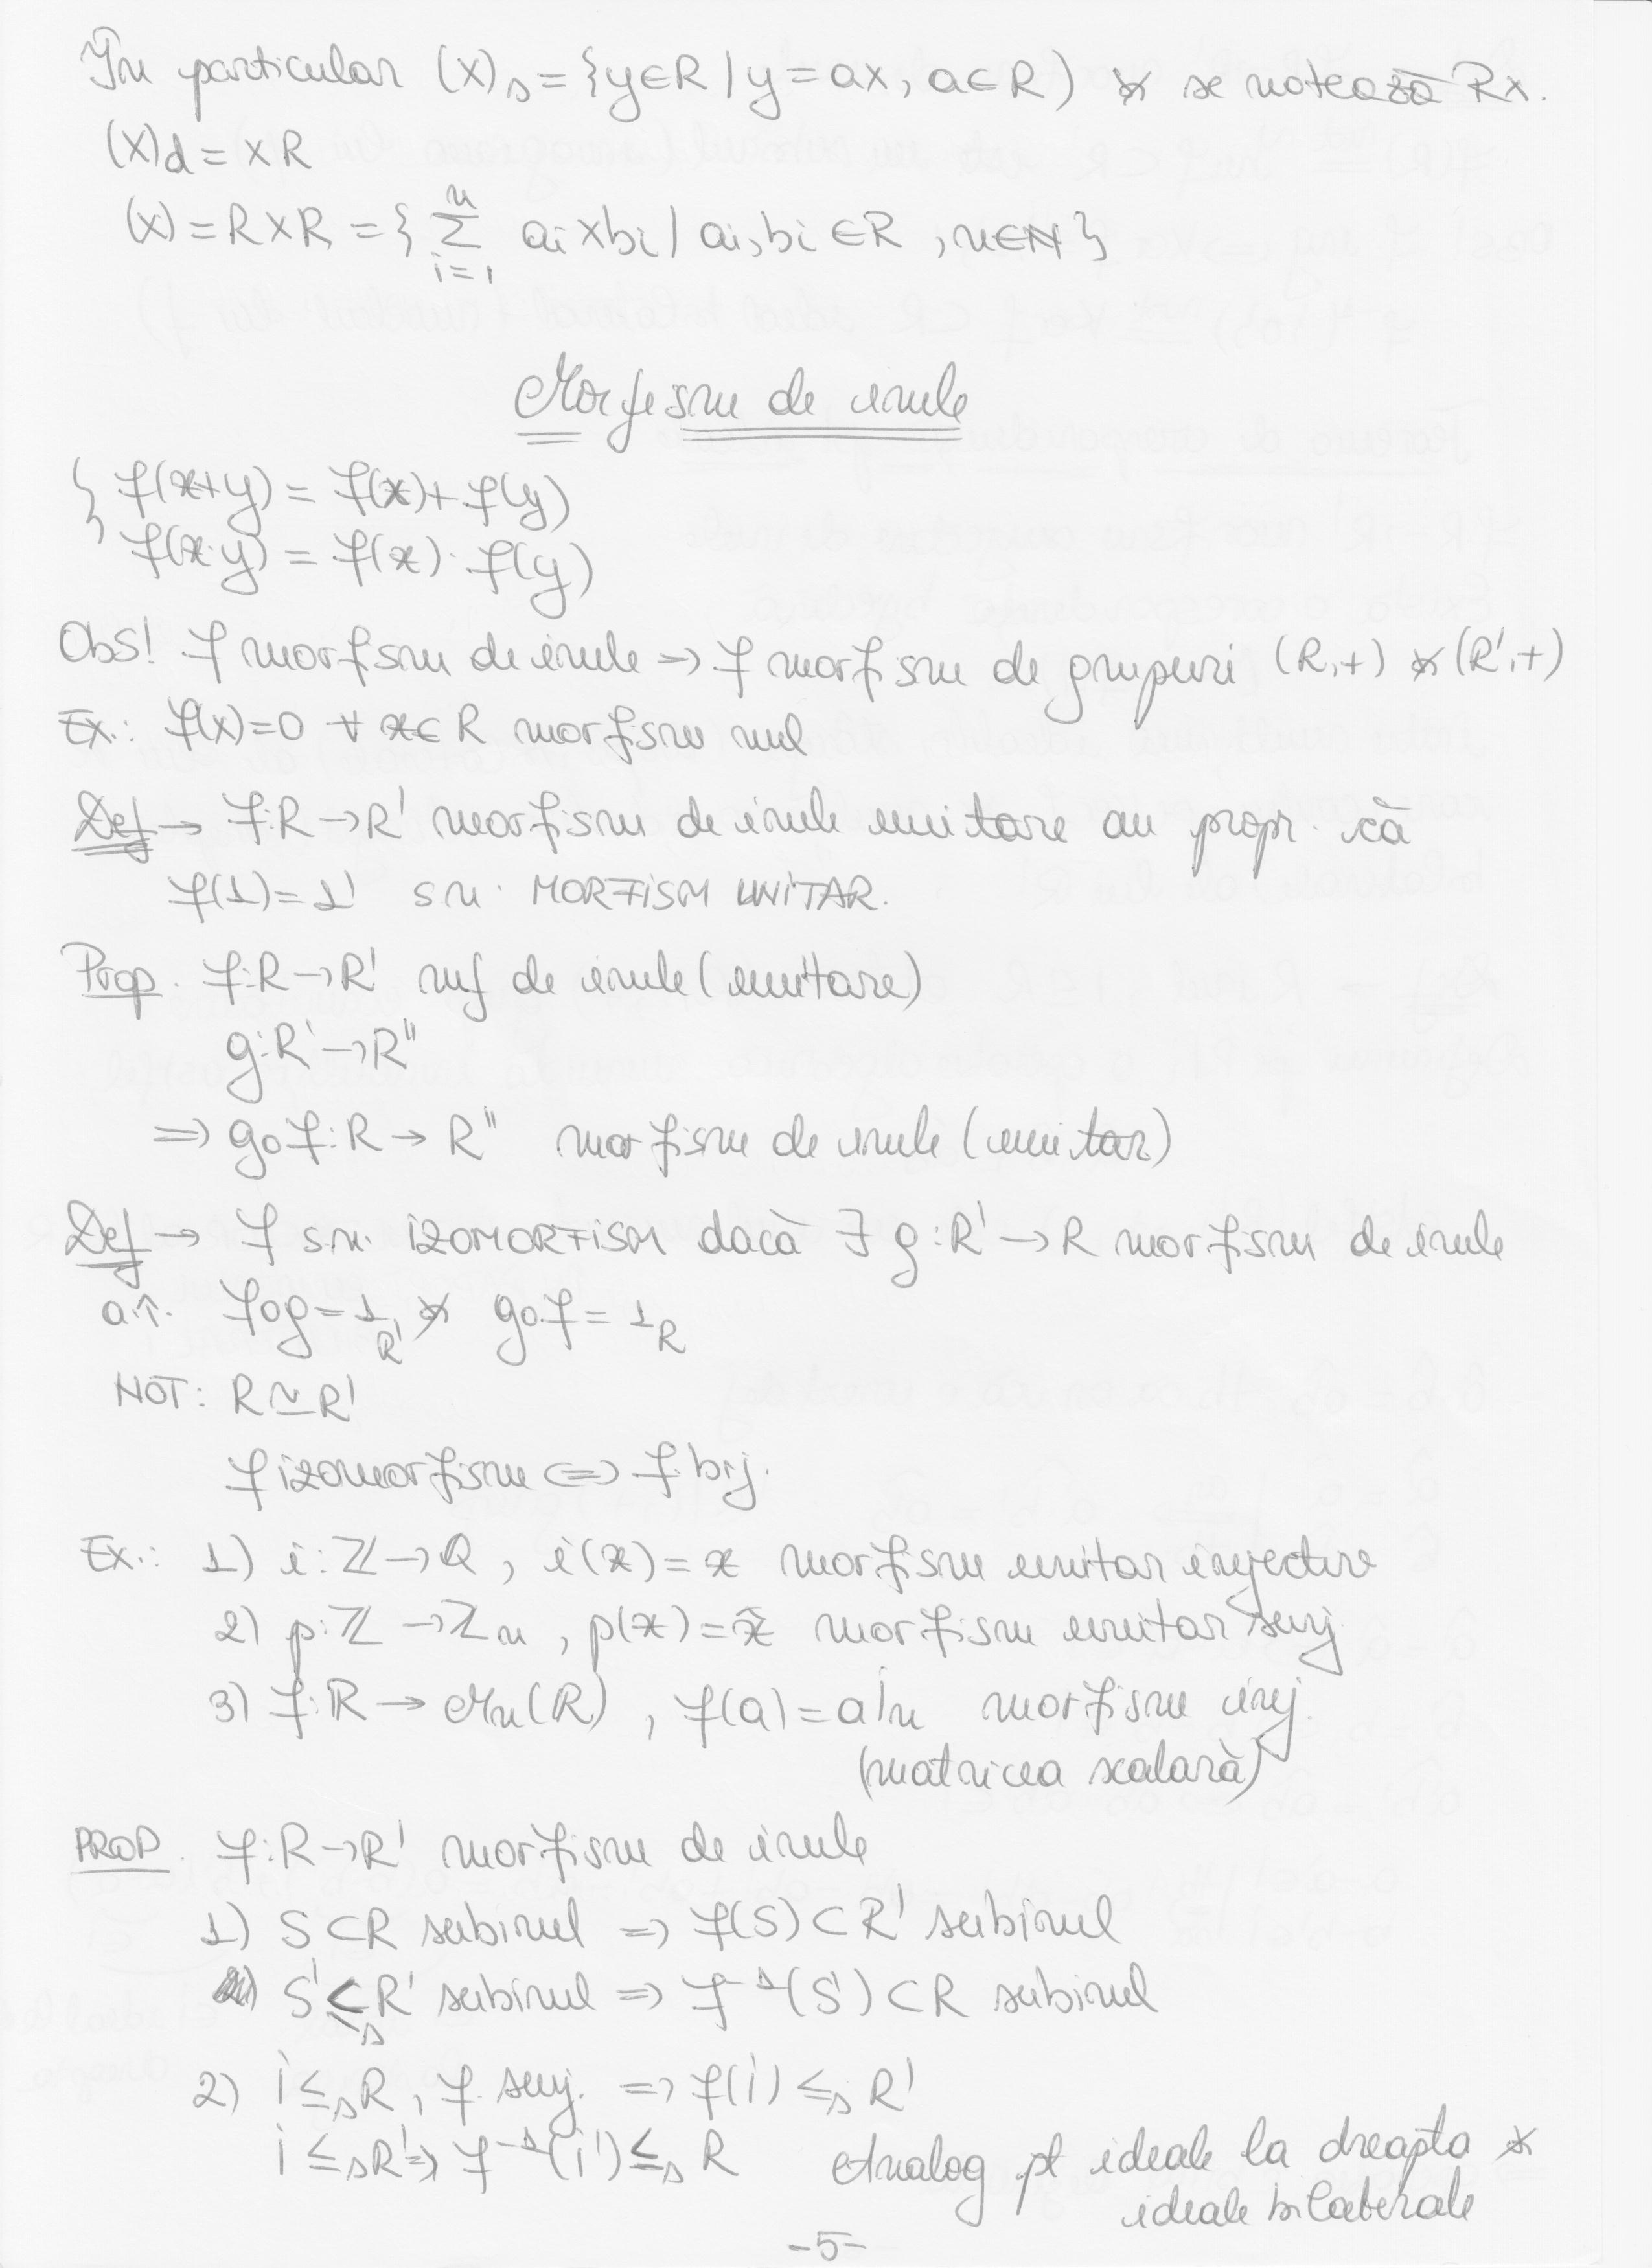 În particular (x)ₛ = {y∈R / y = ax, a∈R) și se notează Rx.
(x)d = xR
(x) = RxR = { ∑ⁿᵢ₌₁ aᵢxbᵢ / aᵢ, bᵢ ∈R , n∈N }
Morfism de inele
{ f(x+y) = f(x)+f(y)
f(x·y) = f(x)·f(y)
Obs! f morfism de inele => f morfism de grupuri (R,+) și (R',+)
Ex.: f(x)=0 ∀ x∈R morfism nul
Def → f:R→R' morfism de inele unitare cu propr. că
f(1)=1' s.n. MORFISM UNITAR.
Prop. f:R→R' mf de inele (unitare)
g:R'→R"
=> g∘f:R→R" morfism de inele (unitar)
Def → f s.n. IZOMORFISM dacă ∃ g:R'→R morfism de inele
a.î. f∘g = 1_R' și g∘f = 1_R
NOT: R≃R'
f izomorfism <=> f bij.
Ex.: 1) i:ℤ→Q, i(x)=x morfism unitar injectiv
2) p:ℤ→ℤn, p(x)=x̂ morfism unitar surj
3) f:R→Mn(R), f(a)=aIn morfism inj.
(matricea scalară)
PROP. f:R→R' morfism de inele
1) S⊂R subinel => f(S)⊂R' subinel
S'≤ₛR' subinel => f⁻¹(S')⊂R subinel
2) i≤ₛR, f surj. => f(i)≤ₛR'
i≤ₛR' => f⁻¹(i')≤ₛ R Analog pt ideale la dreapta și
ideale bilaterale
-5-